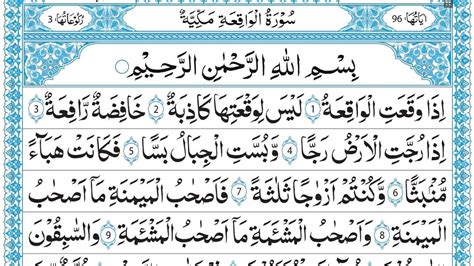 اٰيَاتُهَا: 96 سُوْرَةُ الْوَاقِعَةِ مَكِّيَّةٌ رُكُوْعَاتُهَا: 3
بِسْمِ اللّٰهِ الرَّحْمٰنِ الرَّحِيْمِ
اِذَا وَقَعَتِ الْوَاقِعَةُ 1 لَيْسَ لِوَقْعَتِهَا كَاذِبَةٌ 2 خَافِضَةٌ رَّافِعَةٌ 3
اِذَا رُجَّتِ الْاَرْضُ رَجًّا 4 وَّبُسَّتِ الْجِبَالُ بَسًّا 5 فَكَانَتْ هَبَآءً
مُّنْۢبَثًّا 6 وَّكُنْتُمْ اَزْوَاجًا ثَلٰثَةً 7 فَاَصْحٰبُ الْمَيْمَنَةِ مَاۤ اَصْحٰبُ
الْمَيْمَنَةِ 8 وَاَصْحٰبُ الْمَشْـَٔمَةِ مَاۤ اَصْحٰبُ الْمَشْـَٔمَةِ 9 وَالسّٰبِقُوْنَ